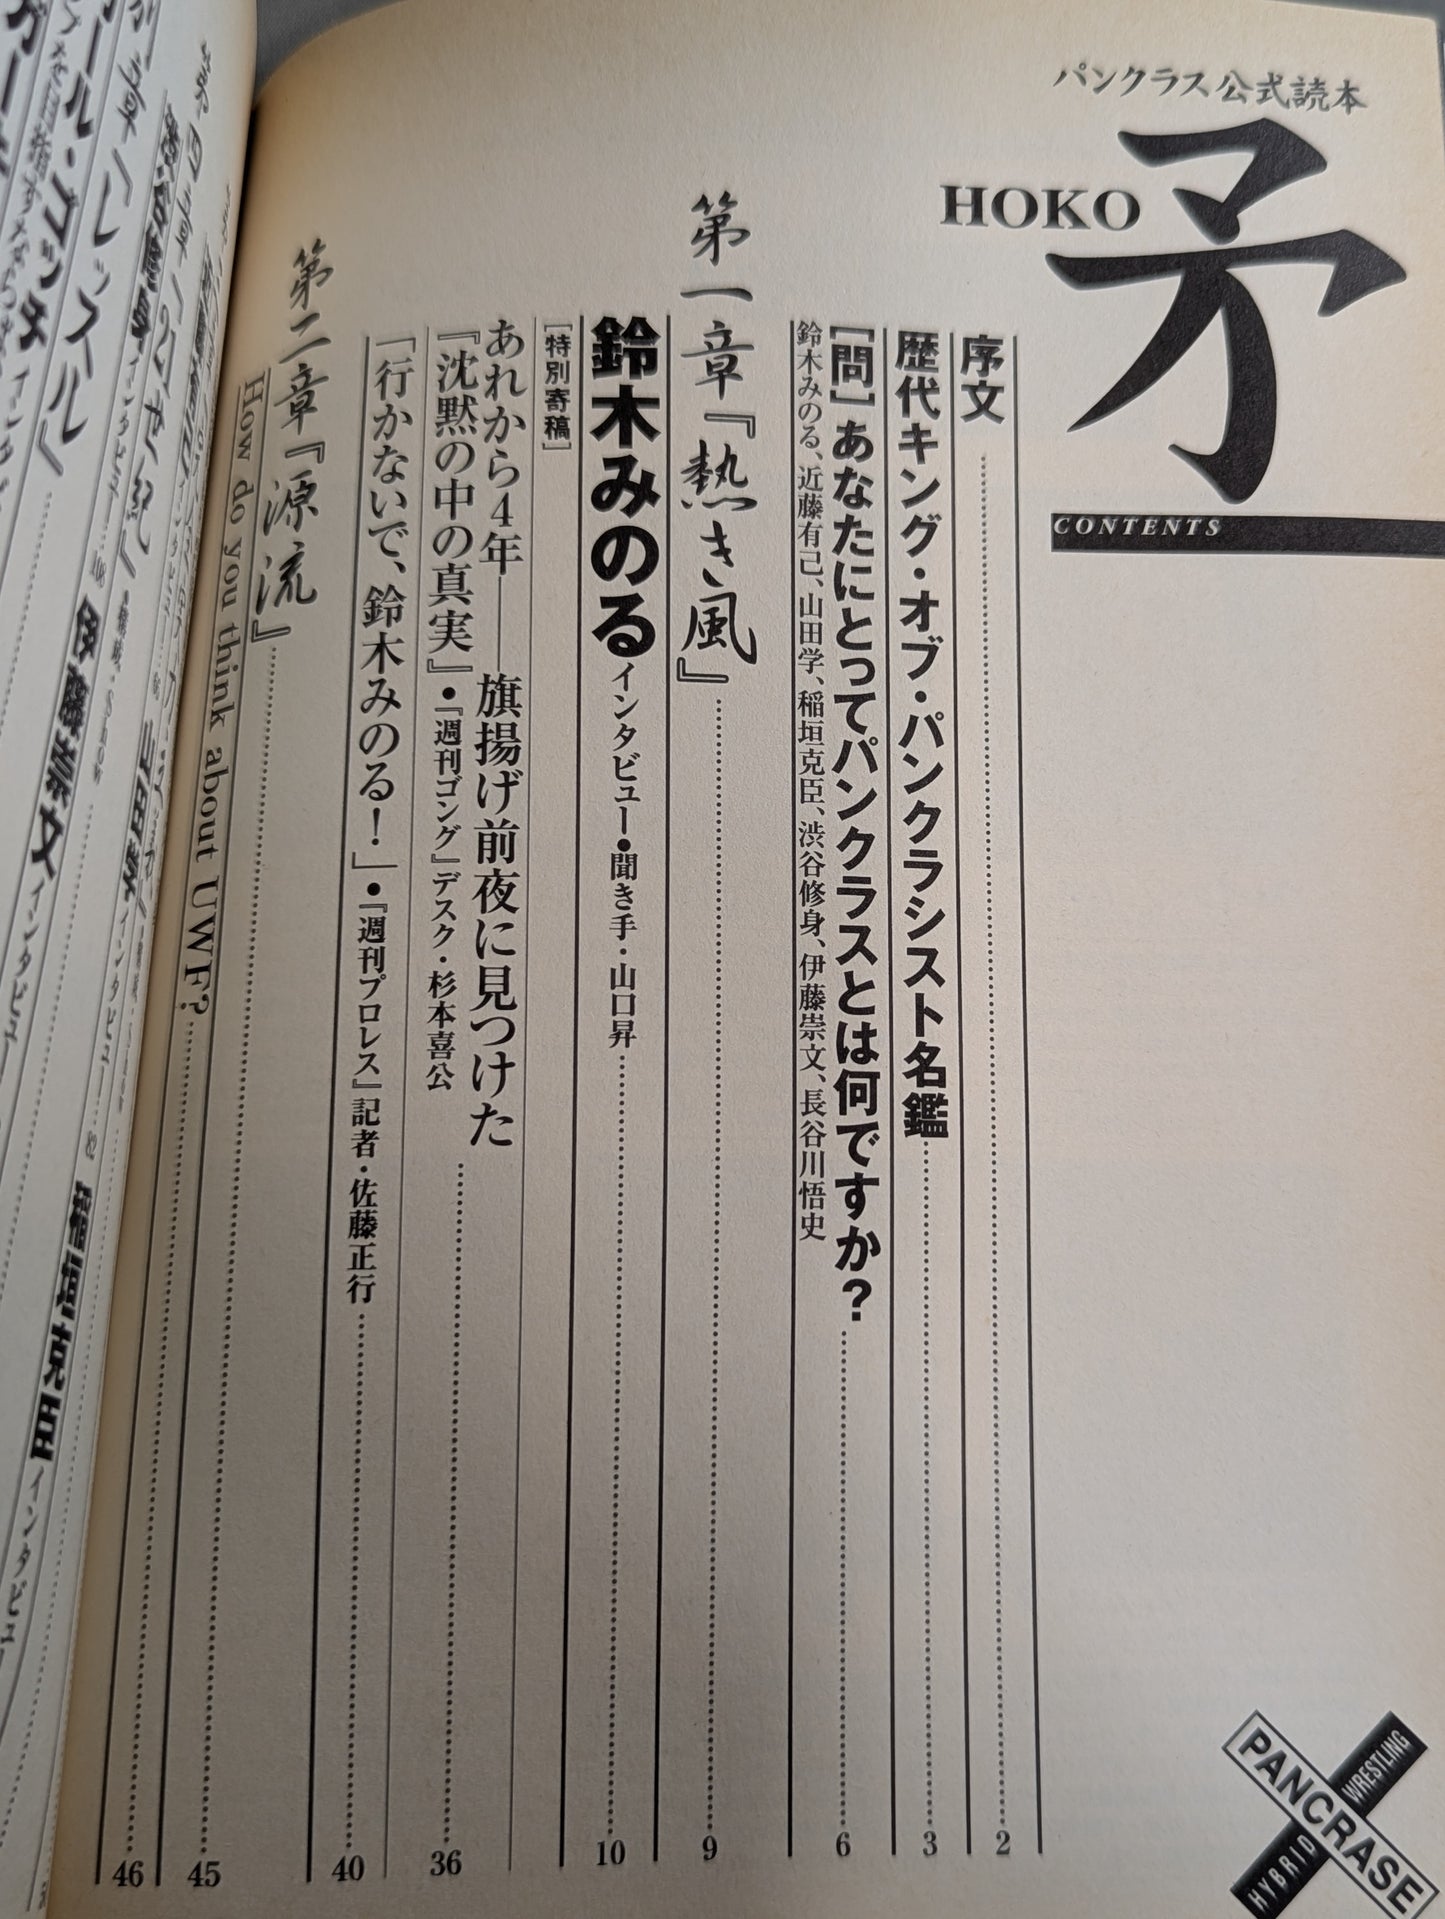 パンクラス公式読本
矛
HOKO
CONTENTS
序文……2
歴代キング・オブ・パンクラシスト名鑑……3
［問］あなたにとってパンクラスとは何ですか？……6
鈴木みのる、近藤有己、山田学、稲垣克臣、渋谷修身、伊藤崇文、長谷川悟史
第一章『熱き風』……9
鈴木みのる インタビュー●聞き手・山口昇……10
［特別寄稿］
あれから4年――旗揚げ前夜に見つけた
『沈黙の中の真実』●『週刊ゴング』デスク・杉本喜公……36
「行かないで、鈴木みのる！」●『週刊プロレス』記者・佐藤正行……40
第二章『源流』……45
How do you think about UWF?……46
山田学 インタビュー
82
稲垣克臣 インタビュー
伊藤崇文 インタビュー
PANCRASE
HYBRID WRESTLING